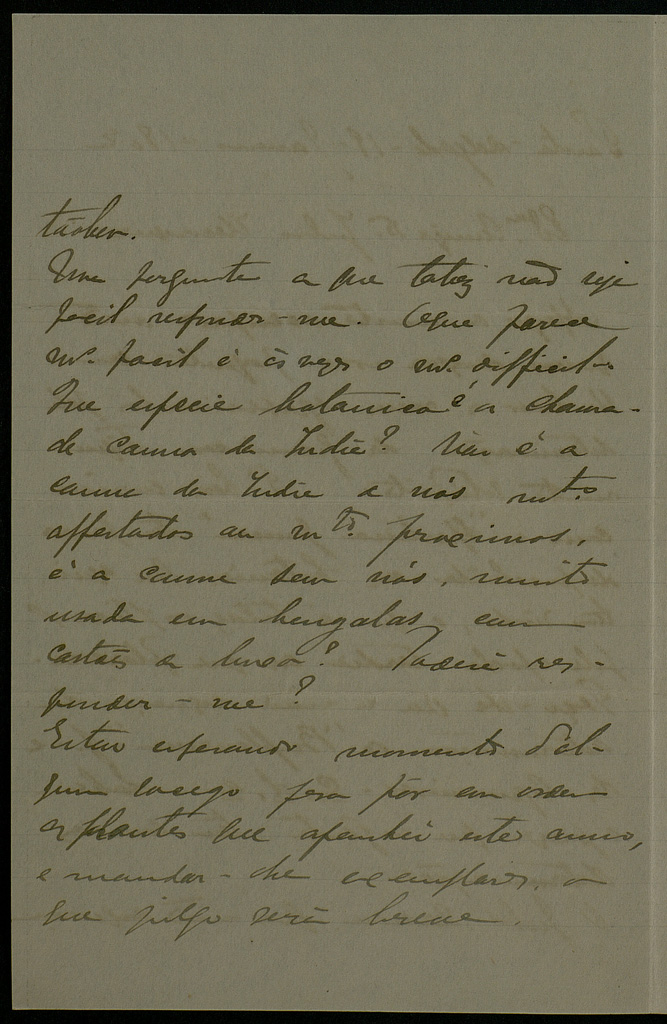 tãobem.
Uma pergunta a que talvez não seja
facil responder-me. O que parece
m.to facil é ás vezes o m.to difficil.
Que especie botanica é a chama-
da canna da India? Não é a
canna da India a nós m.to
affastados ou m.to proximos,
é a canna sem nós, muito
usada em bengalas, com
castão ou
ponder-me?
Estou esperando momento d'al-
gum socego para pôr em ordem
as plantas que apanhei este anno,
e mandar-lhe exemplares, o
que julgo será breve.